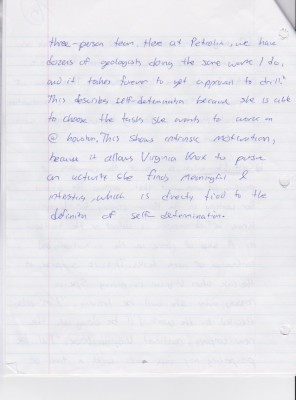 three-person team there at Petrolia, we have
dozens of geologists doing the same work I do,
and it takes forever to get approval to drill."
This describes self-determination because she is able
to choose the tasks she wants to work on
@ houston. This shows intrinsic motivation,
because it allows Virginia Knox to pursue
an activity she finds meaningful &
intresting, which is directly tied to the
definition of self-determination.